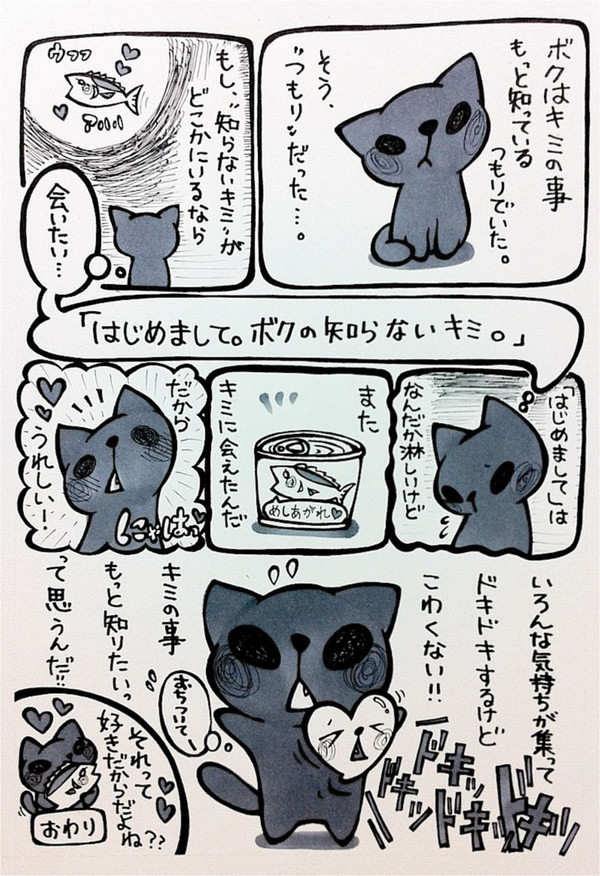 ボクはキミの事
もっと知っている
つもりでいた。
そう、
"つもり"だった…。
もし、"知らないキミ"が
どこかにいるなら
ウフフ
会いたい…
「はじめまして。ボクの知らないキミ。」
「はじめまして」は
なんだか淋しいけど
また
キミに会えたんだ
めしあがれ♥
だから
うれしい!
にゃはっ♥
いろんな気持ちが集って
ドキドキするけど
こわくない!!
ドキッ
ドキッ
ドキッ
ドキッ
おちついてー
キミの事
もっと知りたいっ
って思うんだ!!
それって
好きだからだよね??
おわり